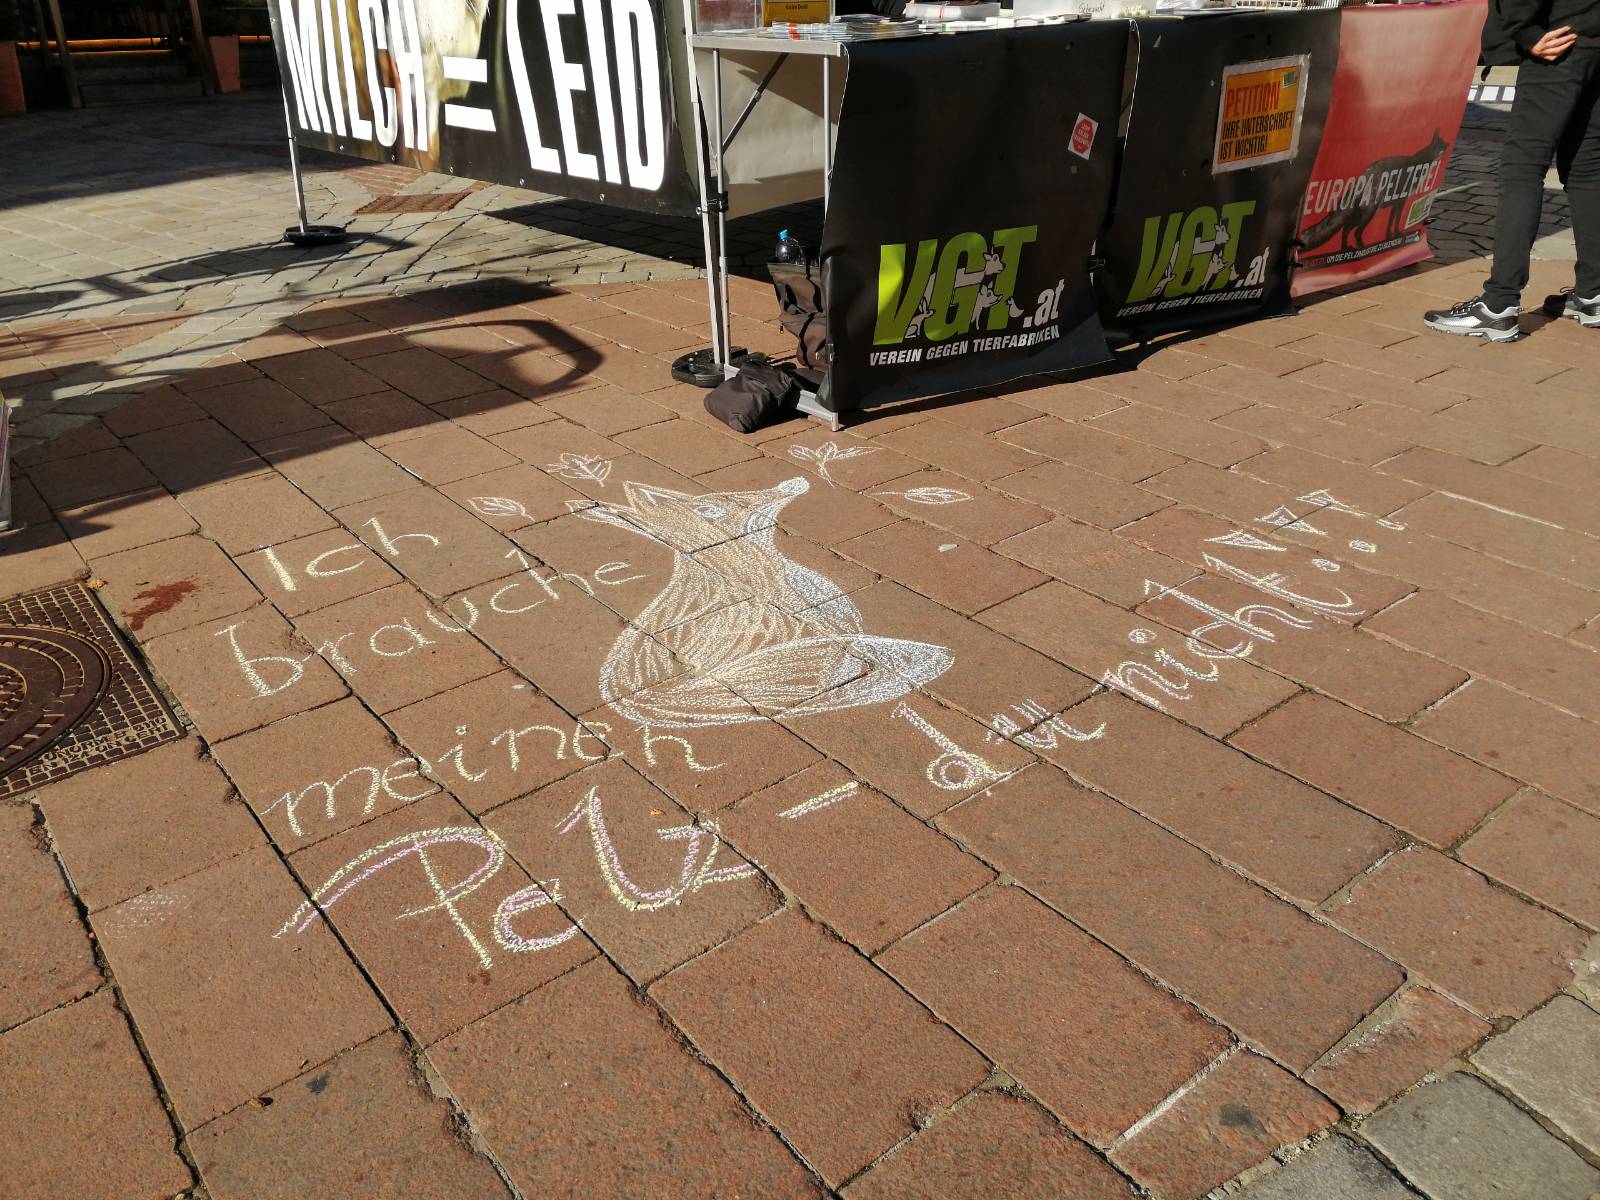 MILCH = LEID
PETITION
IHRE UNTERSCHRIFT
IST WICHTIG!
VGT.at
VEREIN GEGEN TIERFABRIKEN
VGT.at
VEREIN GEGEN TIERFABRIKEN
EUROPA PELZEREI
Ich
brauche
meinen
Pelz - du nicht!!